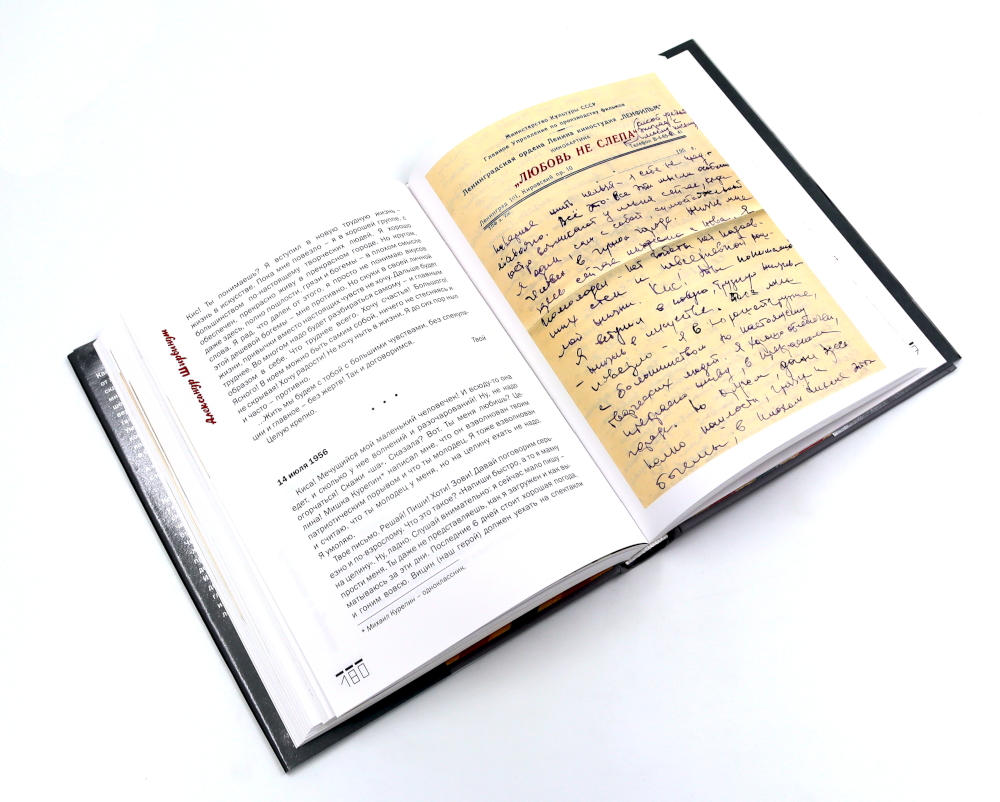 Александр Ширвиндт
Кис! Ты понимаешь? Я вступил в новую трудную жизнь –
жизнь в искусстве. Пока мне повезло – я в хорошей группе, с
большинством по-настоящему творческих людей. Я хорошо
обеспечен, прекрасно живу, в прекрасном городе. Но кругом,
даже здесь, полно пошлости, грязи и богемы – в плохом смысле
слова. Я рад, что далек от этого, я просто не понимаю вкусов
этой дешевой богемы – мне противно. Но скуки в своей личной
жизни, привычки вместо настоящих чувств не хочу. Дальше будет
труднее. Во многом надо будет разбираться самому – и главным
образом в себе. Что труднее всего. Хочу счастья! Большого!
Ясного! В коем можно быть самим собой, ничего не стесняясь и
не скрывая! Хочу радости! Не хочу ныть в жизни. Я до сих пор ныл
и часто – противно.
...Жить мы будем с тобой с большими чувствами, без спекуля-
ции и главное – без жоврта! Так и договоримся.
Целую крепко.
Твой
* * *
14 июля 1956
Киса! Мечущийся мой маленький человечек! И всюду-то она
едет, и сколько у нее волнений и разочарований! Ну, не надо
огорчаться! Скажи «ша». Сказала? Вот. Ты меня любишь? Це-
лина! Мишка Курепин* написал мне, что он взволнован твоим
патриотическим порывом и что ты молодец. Я тоже взволнован
и считаю, что ты молодец у меня, но на целину ехать не надо.
Я умоляю.
Твое письмо. Решай! Пиши! Хоти! Зови! Давай поговорим серь-
езно и по-взрослому. Что это такое? «Напиши быстро, а то я мачу
на целину». Ну, ладно. Слушай внимательно: я сейчас мало пишу –
прости меня. Ты даже не представляешь, как я загружен и как вы-
матываюсь за эти дни. Последние 6 дней стоит хорошая погода,
и гоним вовсю. Вицин (наш герой) должен уехать на спектакли
* Михаил Курепин – одноклассник.
180
Министерство Культуры СССР
Главное Управление по производству фильмов
Ленинградская ордена Ленина киностудия „ЛЕНФИЛЬМ"
КИНОКАРТИНА
„ЛЮБОВЬ НЕ СЛЕПА"
Ленинград 101, Кировский пр. 10
Телефон
195 г.
наверное жить нельзя – я себе не пред-
ставляю. Всё это. Все эти мысли особенно
остро возникают у меня сейчас, когда
я один, сам с собой, самостоятельный
человек в чужом городе. Жизнь мне
Кис! Ты понимаешь
Я вступил в новую трудную жизнь –
– жизнь в искусстве. Пока мне
повезло – я в хорошей группе,
с большинством по-настоящему
творческих людей. Я хорошо обеспечен,
прекрасно живу, в прекрасном
городе. Но кругом, даже здесь
полно пошлости, грязи и
богемы, в плохом смысле этого